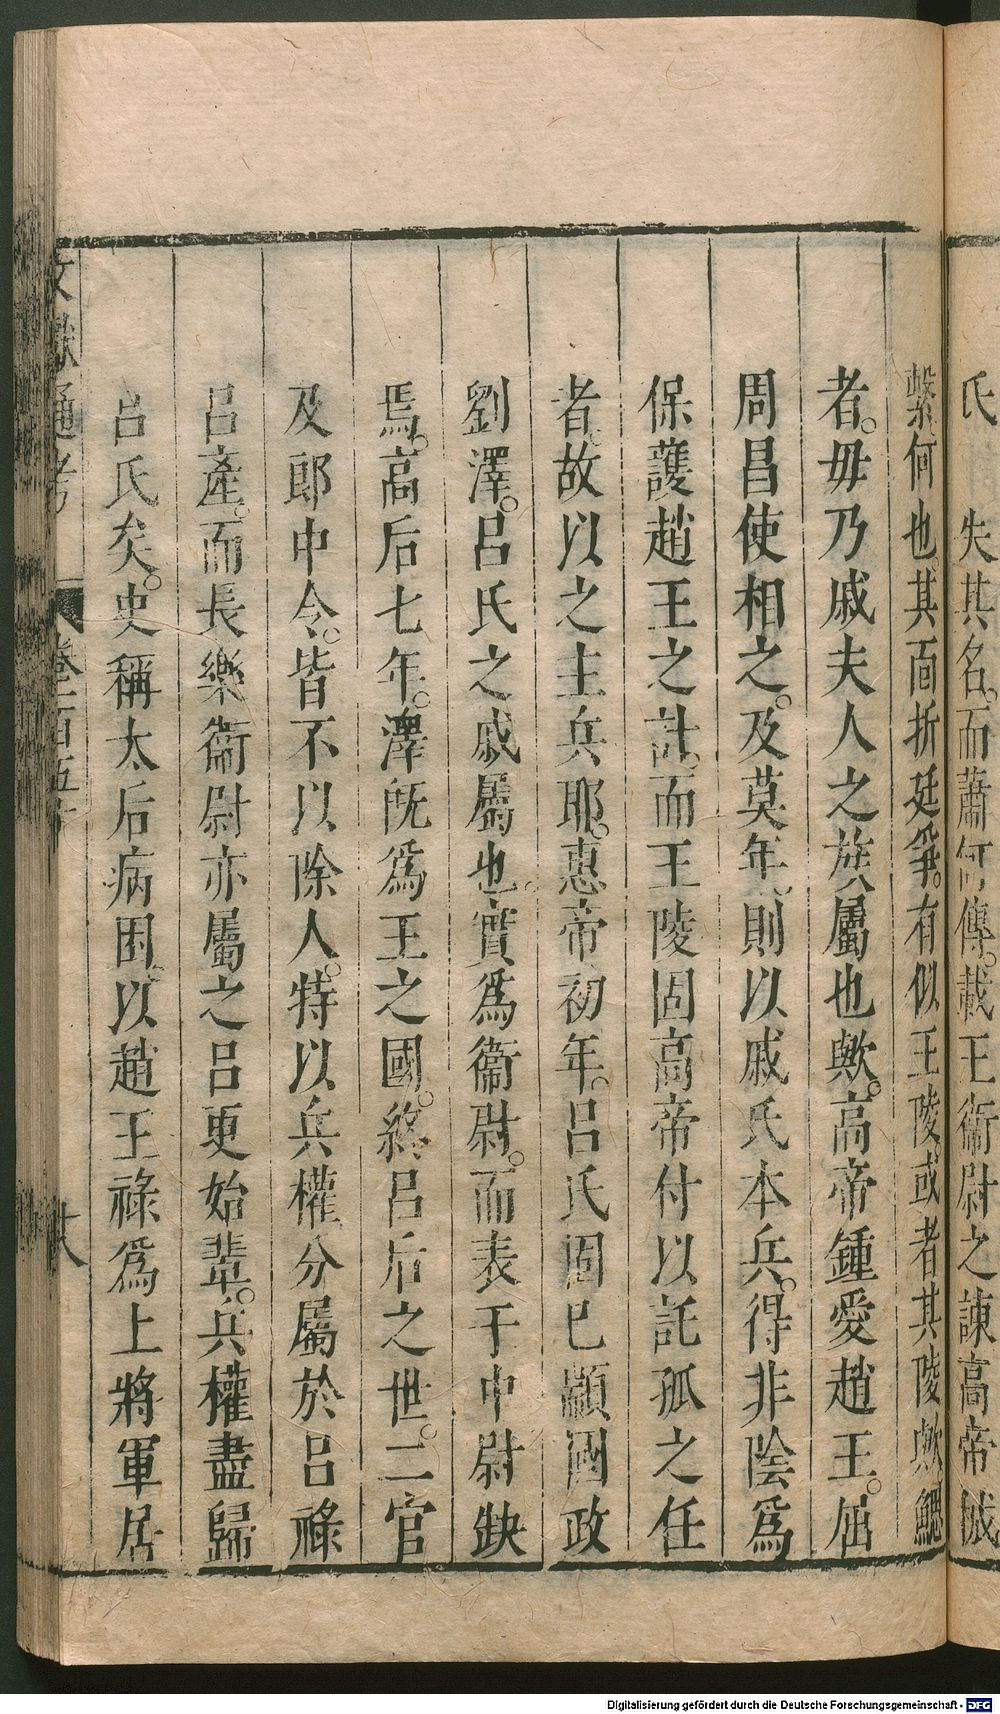 氏　失其名。而蕭何傳。載王衞尉之諫高帝械
繫何也。其面折廷爭。有似王陵。或者其陵歟。鰓
者。毋乃戚夫人之族屬也歟。高帝鍾愛趙王。屈
周昌使相之。及莫年。則以戚氏本兵。得非陰為
保護趙王之計。而王陵固高帝付以託孤之任
者。故以之主兵耶。惠帝初年。呂氏固已顓國政
劉澤。呂氏之戚屬也。實為衞尉。而表于中尉缺
焉。高后七年。澤旣為王之國。終呂后之世。二官
及郎中令。皆不以除人。特以兵權分屬於呂祿
呂產。而長樂衞尉亦屬之呂更始輩。兵權盡歸
呂氏矣。史稱太后病困。以趙王祿為上將軍居
文獻通考
卷一百五十
廿八
Digitalisierung gefördert durch die Deutsche Forschungsgemeinschaft - DFG